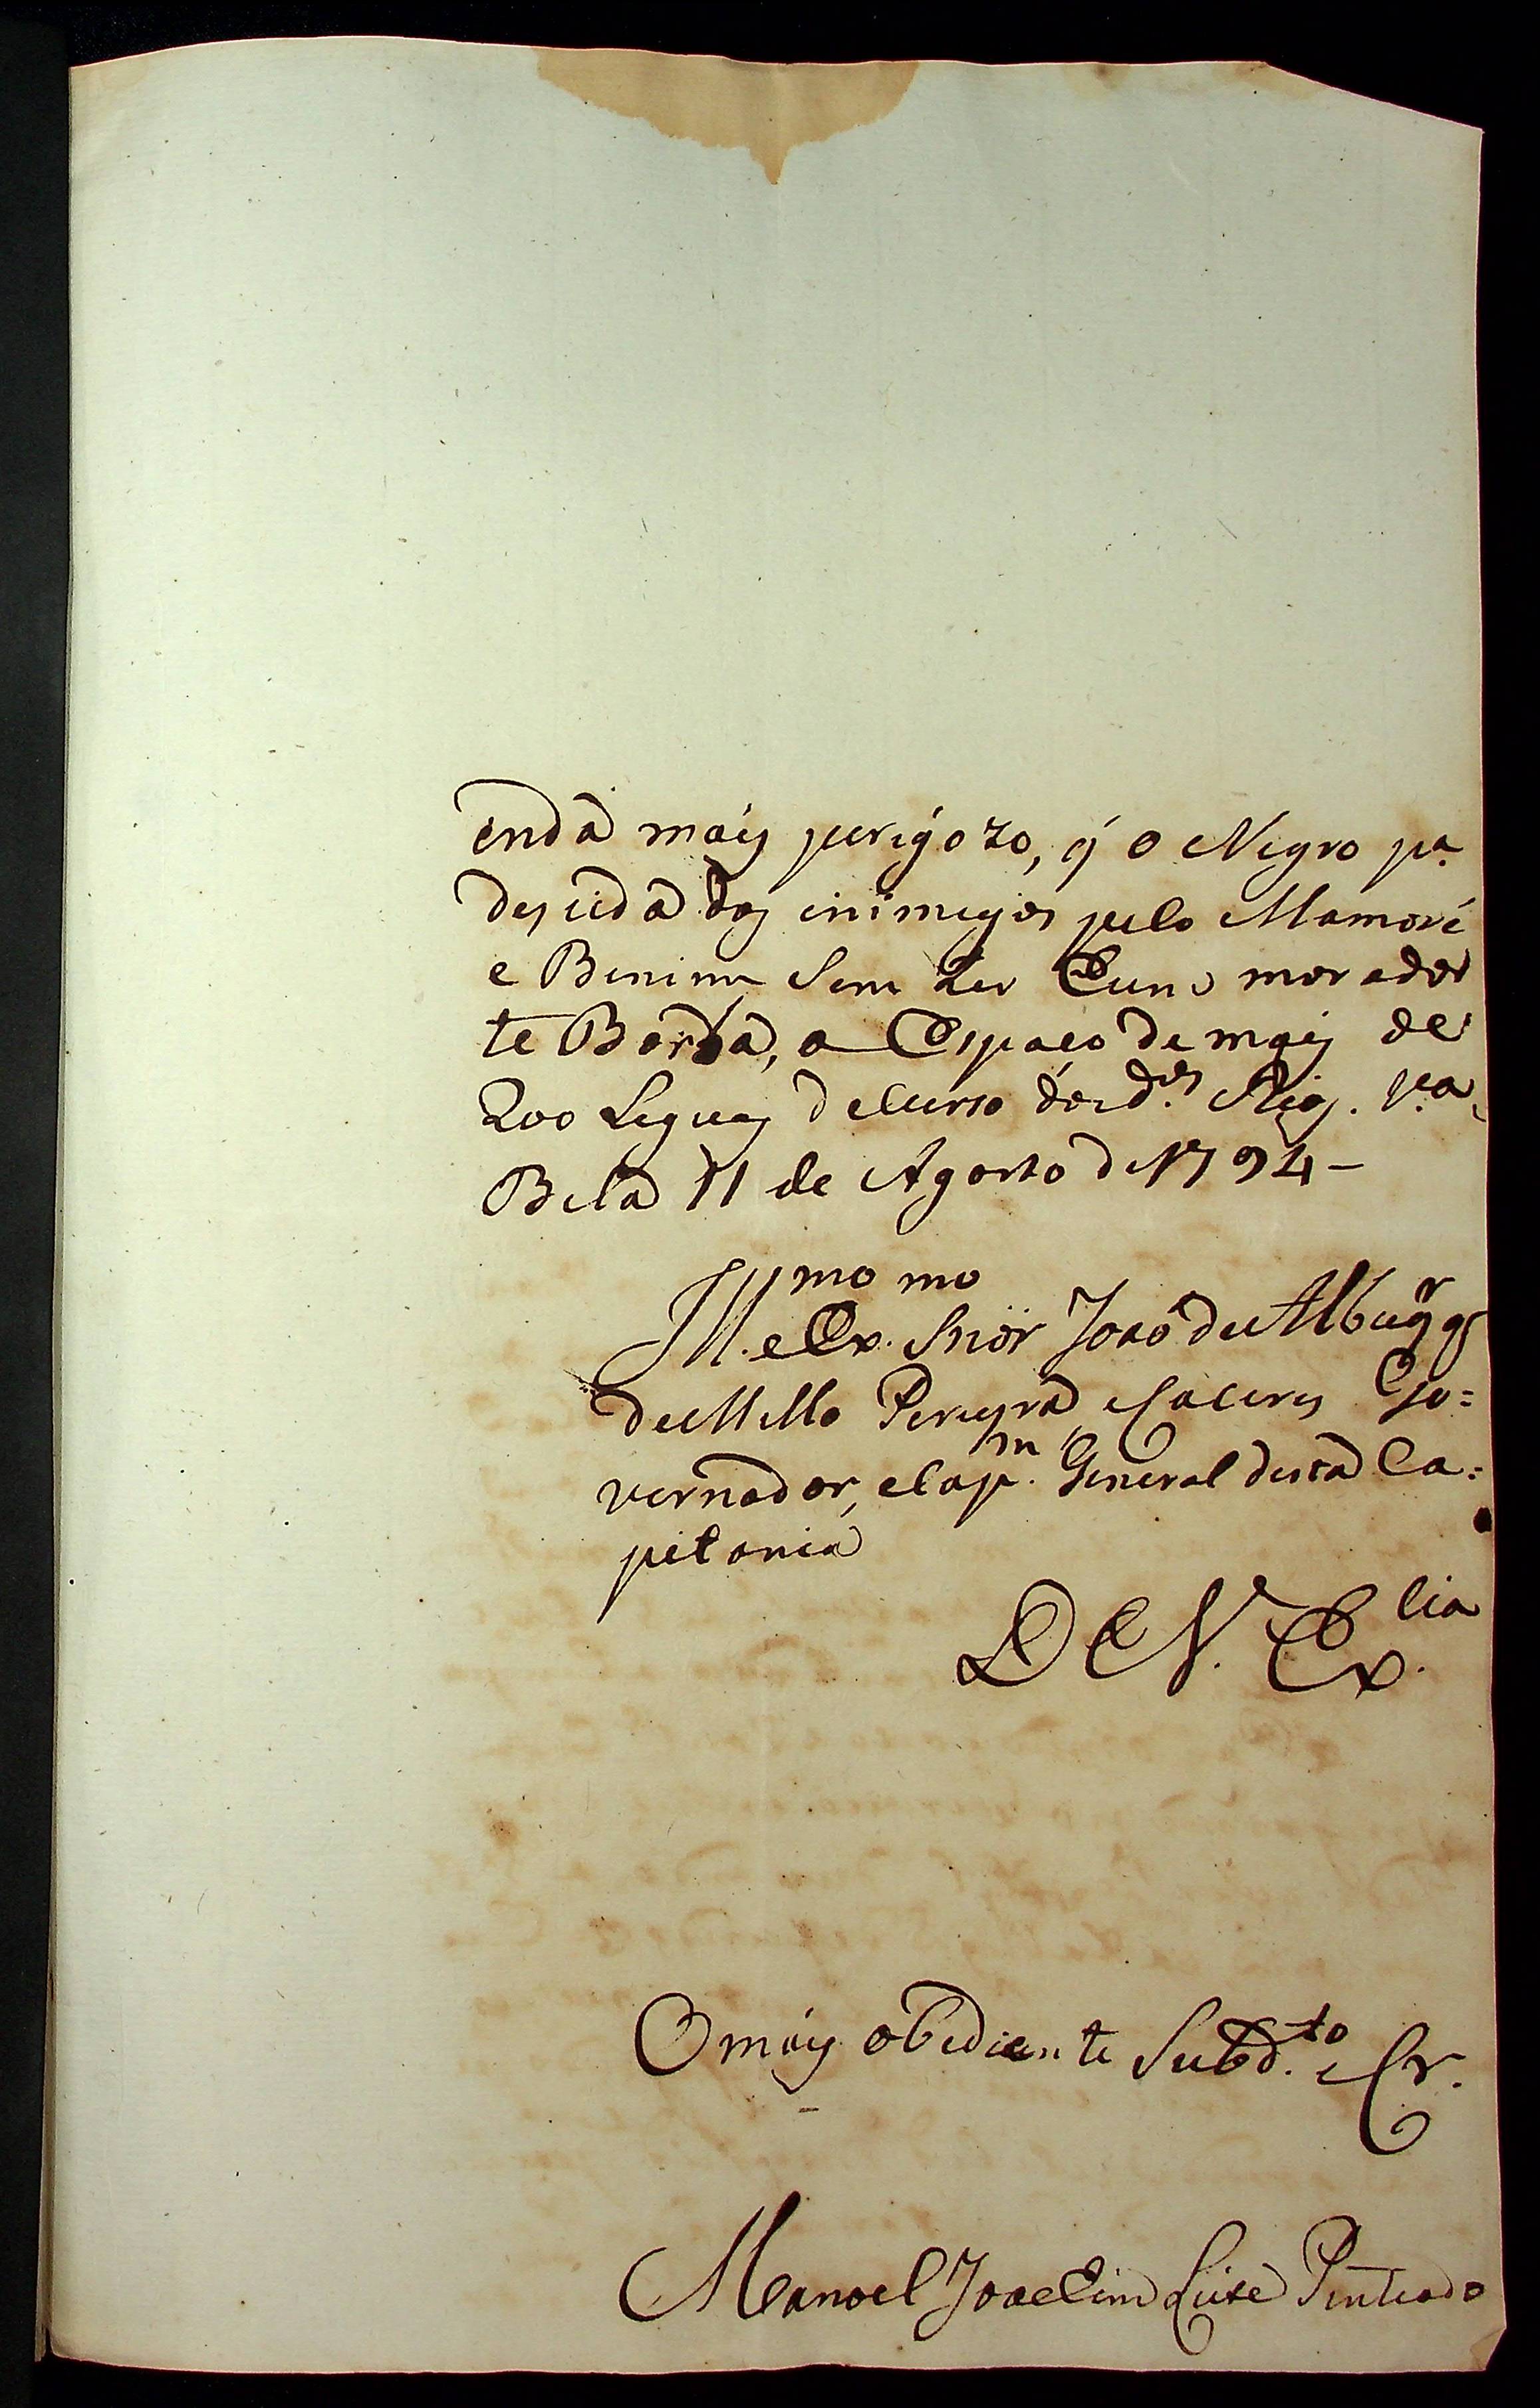 enda mais perigozo, q̃ o Negro p.ª
descida dos inimigos pelo Mamoré
e Benim Sem ter hum morador
te Borba, a Espaço de mais de
200 Leguas de Curso dos d.os Rios. V.a
Bela 11 de Agosto de 1794-
Ill.mo e Ex.mo Snõr João de Albuq̃q.r
de Mello Pereyra e Caceres Go=
vernador, e Cap.m General desta Ca=
pitania
De V. Ex.cia
O mais obediente Subd.to e Cr.
Manoel Joachim Leite Penteado